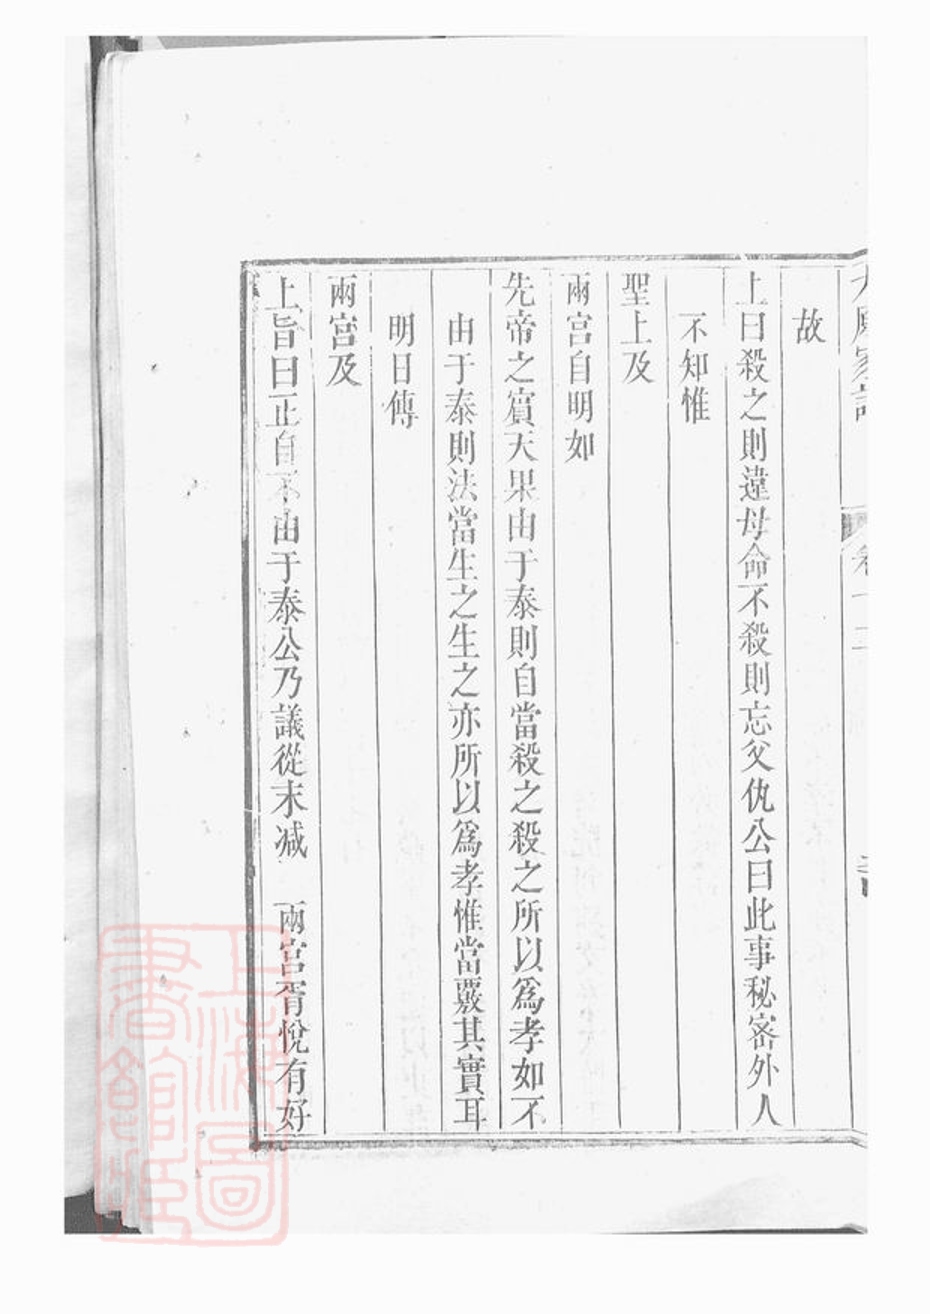 故
上曰殺之則違母命不殺則忘父仇公曰此事秘密外人
不知惟
聖上及
兩宮自明如
先帝之賓天果由于泰則自當殺之殺之所以爲孝如不
由于泰則法當生之生之亦所以爲孝惟當覈其實耳
明日傳
兩宮及
上旨曰正自不由于泰公乃議從末减　兩宮胥悅有好
上海圖書館藏